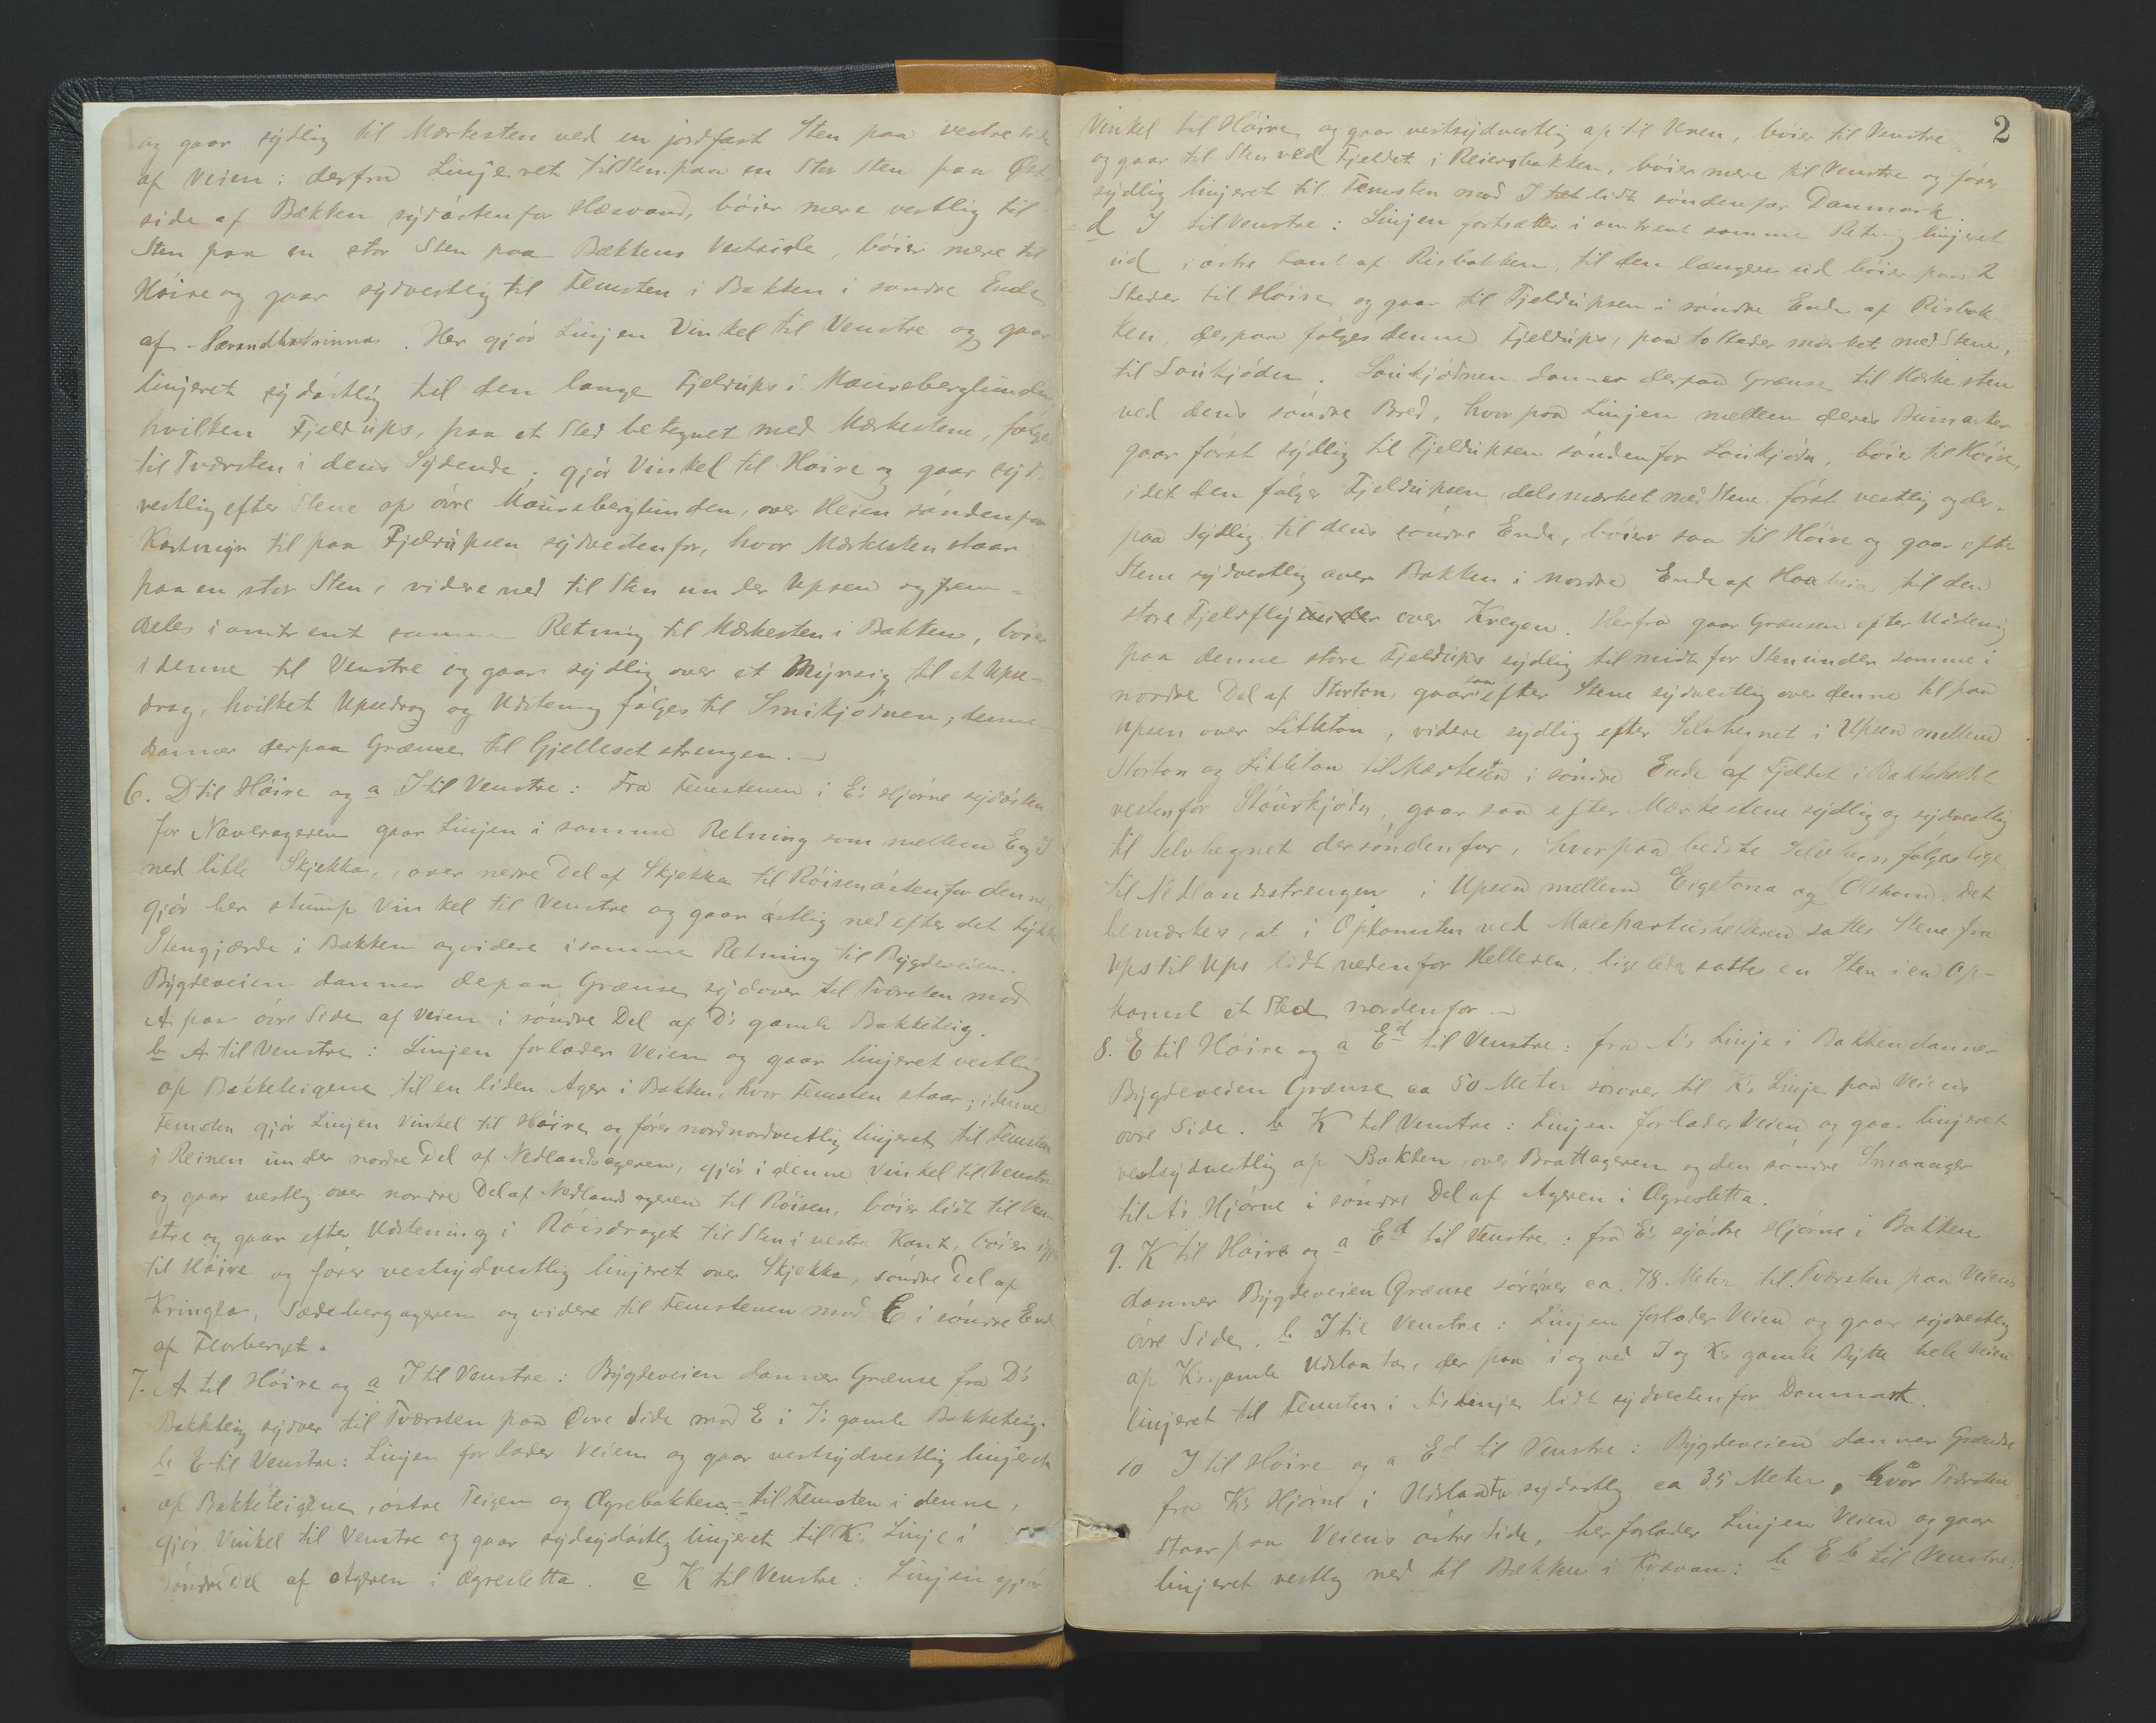 og gaar sydlig til Mærkesten ved en jordfast Sten paa vestre Side
af Veien; derfra Linjeret til Sten paa en Stor Sten paa Øst
side af Bækken sydøstenfor Hæsvand, bøier mere vestlig til
Sten paa en stor Sten paa Bækkens Vestside, bøier mere til
Høire og gaar sydvestlig til Femsten i Bakken i søndre Ende
af. Her gjør Linjen Vinkel til Venstre og gaar
linjeret sydøstlig til den lange Fjeldups i Maureberglunden
hvilken Fjeldups, paa et Sted betegnet med Mærkestene, følges
til Tværsten i dens Sydende; gjør Vinkel til Høire og gaar syd-
vestlig efter Stene op øvre Maureberglunden, over Heien søndenfor
Kortmyr til paa Fjeldupsen sydvestenfor, hvor Mærkesten staar
paa en stor Sten, videre ned til Sten under Upsen og frem-
deles i omtrent samme Retning til Mærkesten i Bakken, bøier
i denne til Venstre og gaar sydlig over et Myrsig til et Upse-
drag, hvilket Upsedrag og Udstening følges til Smikjødnen; denne
danner derpaa Grænse til Gjelleset strengen. –
6. D til Høire og a I til Venstre: Fra Femstenen i E's Hjørne sydøsten
for Naverageren gaar Linjen i samme Retning som mellem E og D
ned litle Skjekka, over nedre Del af Skjekka til Røisen østenfor denne,
gjør her stump Vinkel til Venstre og gaar østlig ned efter det tykke
Stengjærde i Bakken og videre i samme Retning til Bygdeveien.
Bygdeveien danner depaa Grænse sydover til Tværsten mod
A paa øvre Side af Veien i søndre Del af D's gamle Bakketeig.
b A til Venstre: Linjen forlader Veien og gaar linjeret vestlig
op Bakketeigene til en liden Ager i Bakken, hvor Femsten staar; i denne
Femsten gjør Linjen Vinkel til Høire og fører nordnordvestlig linjeret til Femsten
i Reinen under nordre Del af Nedlandsageren, gjør i denne Vinkel til Venstre
og gaar vestlig over nordre Del af Nedlandsageren til Røisen, bøier lidt til Ven-
stre og gaar efter Udstening i Røisdraget til Sten i vestre Kant, bøier igjen
til Høire og fører vestsydvestlig linjeret over Skjekka, søndre Del af
Kringla, Sædebergageren og videre til Femstenen mod E i søndre Ende
af Florberget.
7. A til Høire og a I til Venstre: Bygdeveien danner Grænse fra D's
Bakkteig sydover til Tværsten paa Øvre Side mod E i I's gamle Bakketeig.
b E til Venstre: Linjen forlader Veien og gaar vestsydvestlig linjeret
op Bakketeigene, østre Teigen og Øgrebakken – til Femsten i denne,
gjør Vinkel til Venstre og gaar sydsydøstlig linjeret til K's Linje i
søndre Del af Ageren i Øgresletta. c K til Venstre: Linjen gjør
2
Vinkel til Høire og gaar vestsydvestlig op til Uren, bøier til Venstre
og gaar til Sten ved Fjeldet i Reiersbakken, bøier mere til Venstre og fører
sydlig linjeret til Femsten mod I tæt lidt søndenfor Danmark.
d I til Venstre: Linjen fortsætter i omtrent samme Retning linjeret
ud i østre Kant af Risbakken, til den længere ud bøier paa 2
Steder til Høire og gaar til Fjeldupsen i søndre Ende af Risbak
ken, derpaa følges denne Fjeldups, paa to Steder mærket med Stene,
til Loukjødn. Loukjødnen danner derpaa Grænse til Mærkesten
ved dens søndre Bred, hvorpaa Linjen mellem deres Bumarker
gaar først sydlig til Fjeldupsen søndenfor Loukjødn, bøier til Høire,
idet den følger Fjeldupsen, dels mærket med Stene først vestlig og der-
paa Sydlig til dens søndre Ende, bøier saa til Høire og gaar efter
Stene sydvestlig over Bakken i nordre Ende af Haaheia, til den
store Fjeldfly under over Kregen. Herfra gaar Grænsen efter Udstening
paa denne store Fjeldups sydlig til midt for Sten under samme i
nordre Del af Storton, gaar saa efter Stene sydvestlig over denne til paa
Upsen over Litleton, videre sydlig efter Selvhegnet i Upsen mellem
Storton og Litleton til Mærkesten i søndre Ende af Fjeldet i Bakkeholdt
vestenfor Stourkjødn, gaar saa efter Mærkestene sydlig og sydvestlig
til Selvhegnet dersøndenfor, hvorpaa bedste Selvhegn følges lige
til Nedlandsstrengen i Upsen mellem Eegetona og Olskom. Det
bemærkes, at i Opkomsten ved Malepartushelleren sattes Stene fra
Ups til Ups lidt nedenfor Helleren, ligeledes sattes en Sten i en Op-
komst et Sted nordenfor. –
8. E til Høire og a Ed til Venstre: fra A's Linje i Bakken danner
Bygdeveien Grænse ca 50 Meter sørover til K's Linje paa Veiens
øvre Side. b K til Venstre: Linjen forlader Veien og gaar linjeret
vestsydvestlig op Bakken, over Brattageren og den søndre Smaaager
til A's Hjørne i søndre Del af Ageren i Øgresletta.
9. K til Høire og a Ed til Venstre: fra E's sydøstre Hjørne i Bakken
danner Bygdeveien Grænse sørover ca. 78 Meter til Tværsten paa Veiens
øvre Side. b I til Venstre: Linjen forlader Veien og gaar sydvestlig
op K's gamle Udslaatta, derpaa i og ved I og K's gamle Bytte hele Veien
linjeret til Femsten i A's Linje lidt sydvestenfor Danmark.
10 I til Høire og a Ed til Venstre: Bygdeveien danner Grændse
fra K's Hjørne i Udslaatta sydøstlig ca 35 Meter, hvor Tværsten
staar paa Veiens østre Side, her forlader Linjen Veien og gaar
linjeret vestlig ned til Bækken i Kvævan: b Eb til Venstre: